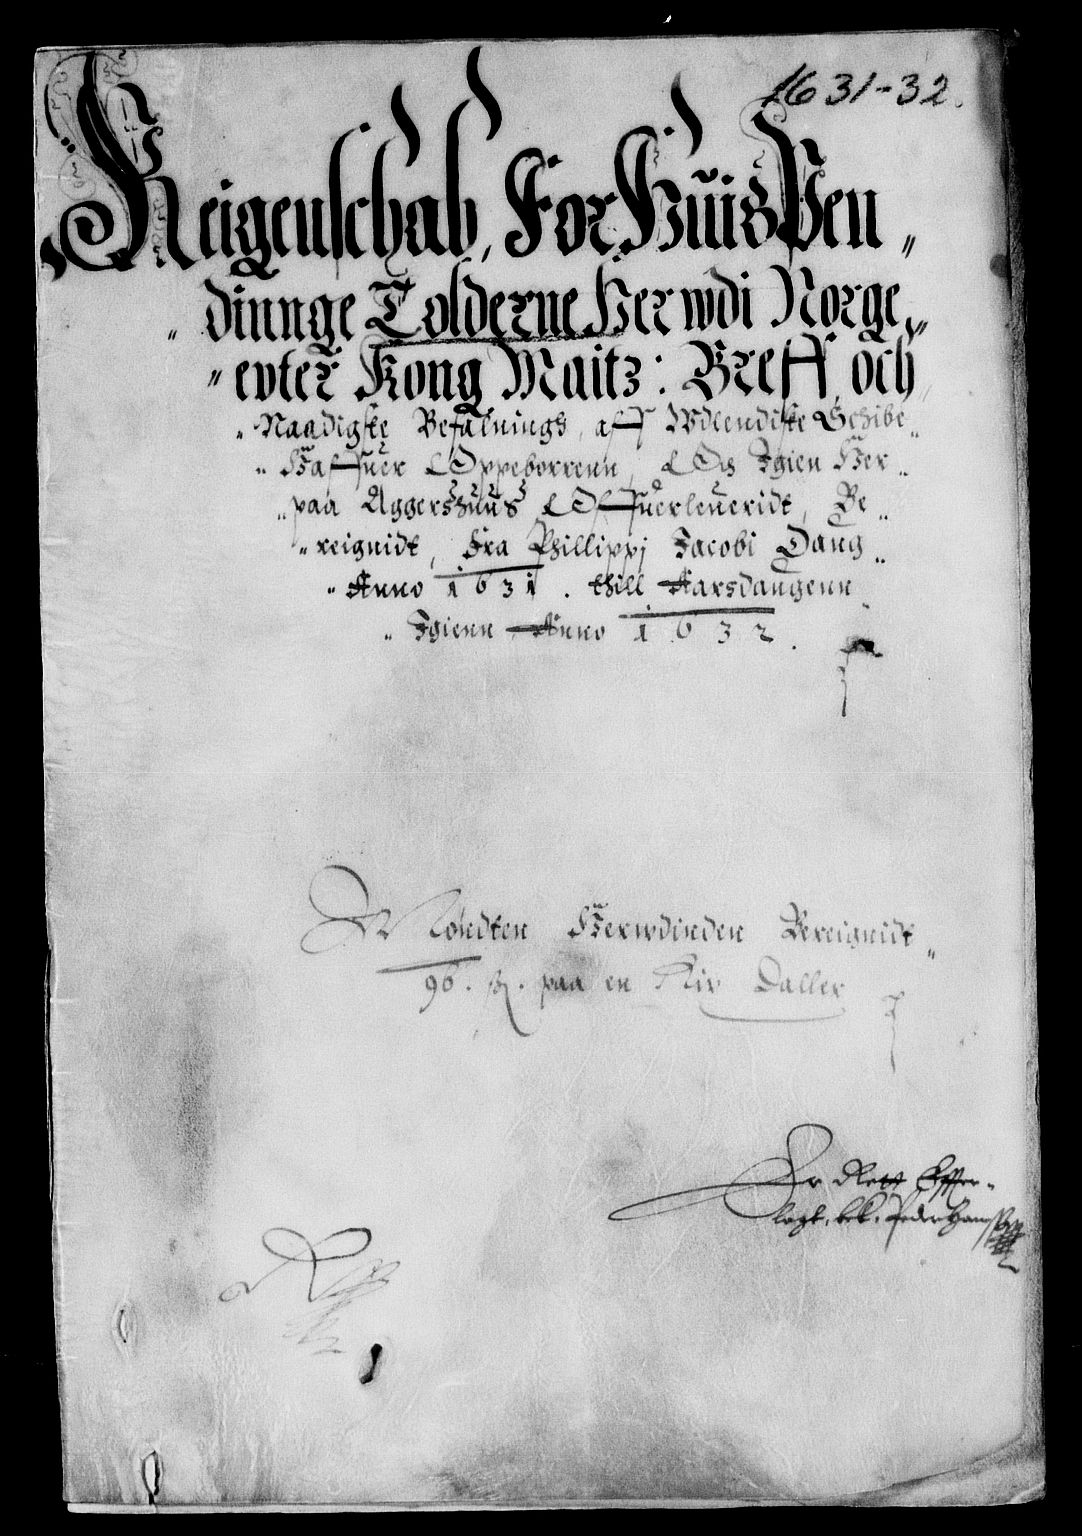 1631-32.
Reigenschab, For Huis Pen„
„ dinnge Tolderne Her wdi Norge„
„ evter Kong Maitz: Breff, och
„ Naadigste Befalnings, aff Wdlendiske Schibe„
„ Haffuer Oppeborrenn, Os Igien Her„
„ paa Aggershuus Offuerleueridt, Be„
„ reignidt, Fra Phillippj Jacobi Daug„
„ Anno 1631. thill Aarsdaugenn
„ Igienn Anno 1632.
Møndten Herwdinden Bereignidt„
96. ß. paa en Rix Daller
Er Rett Offuer-
lagt,